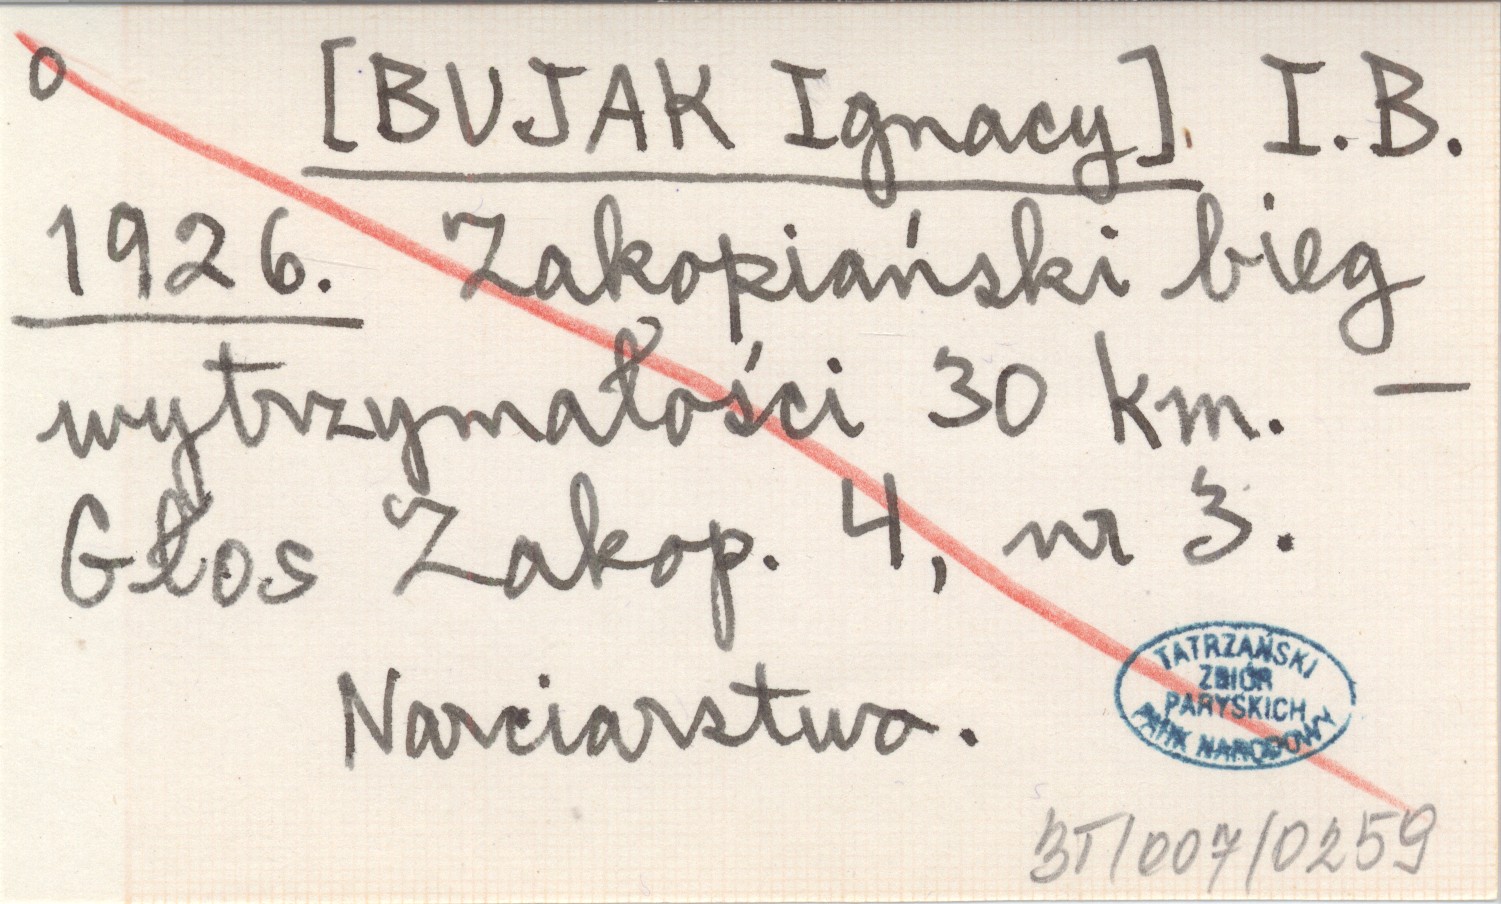 o [BUJAK Ignacy] I.B.
1926. Zakopiański bieg
wytrzymałości 30 km. —
Głos Zakop. 4, nr 3.
Narciarstwo.
TATRZAŃSKI
ZBIÓR
PARYSKICH
PARK NARODOWY
3T/007/0259